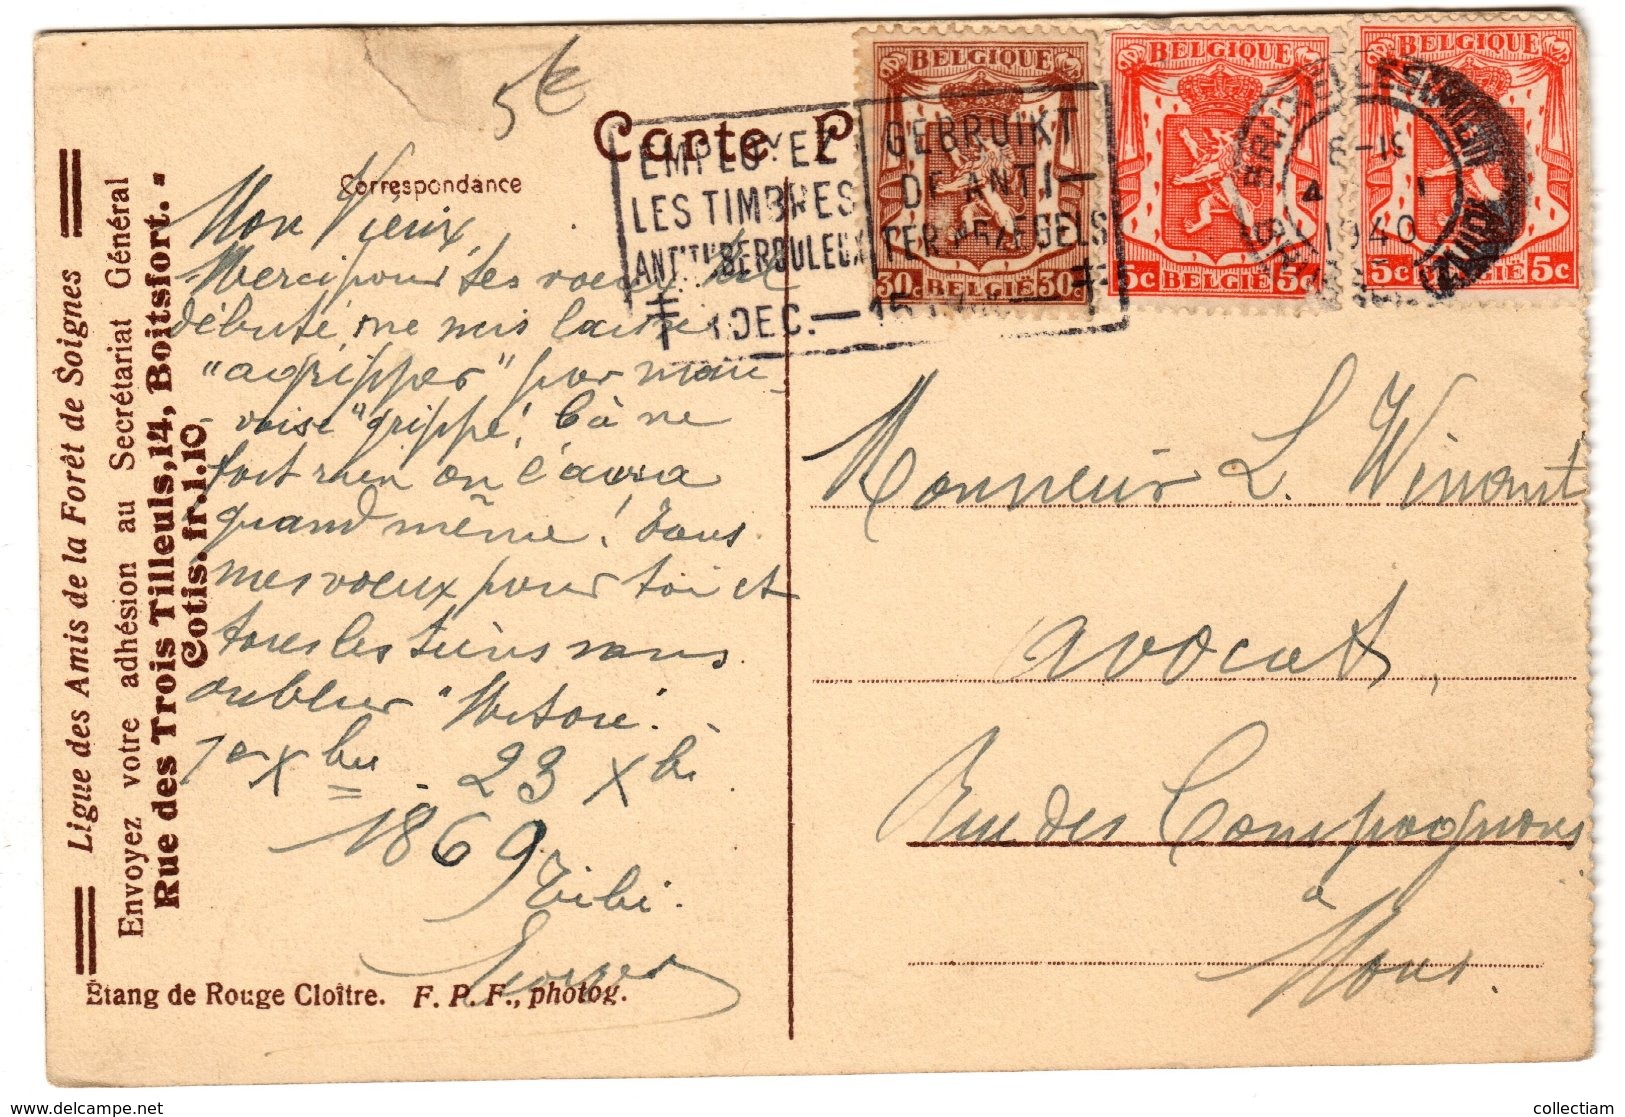 5€
Carte P
Correspondance
BELGIQUE
30c BELGIË 30c
BELGIQUE
5c BELGIË 5c
BELGIQUE
5c BELGIË 5c
EMPLOYEZ
LES TIMBRES
ANTITUBERCULEUX
1 DEC. — 15
GEBRUIKT
DE ANTI—
TERINGZEGELS
1940
Ligue des Amis de la Forêt de Soignes
Envoyez votre adhésion au Secrétariat Général
Rue des Trois Tilleuls, 14, Boitsfort. -
Cotis. fr. 1.10
Mon Vieux,
Merci pour tes voeux
débuté, me suis laissé
"agripper" par mau-
-vaise "grippe". Cà ne
fait rien on l'aura
quand même! Tous
mes voeux pour toi et
tous les tiens sans
oublier
23 X
1869
Bibi.
Monsieur L. Winant
avocat,
Rue des Compagnons
à
Mons.
Étang de Rouge Cloître. F. P. F., photog.
collectiam